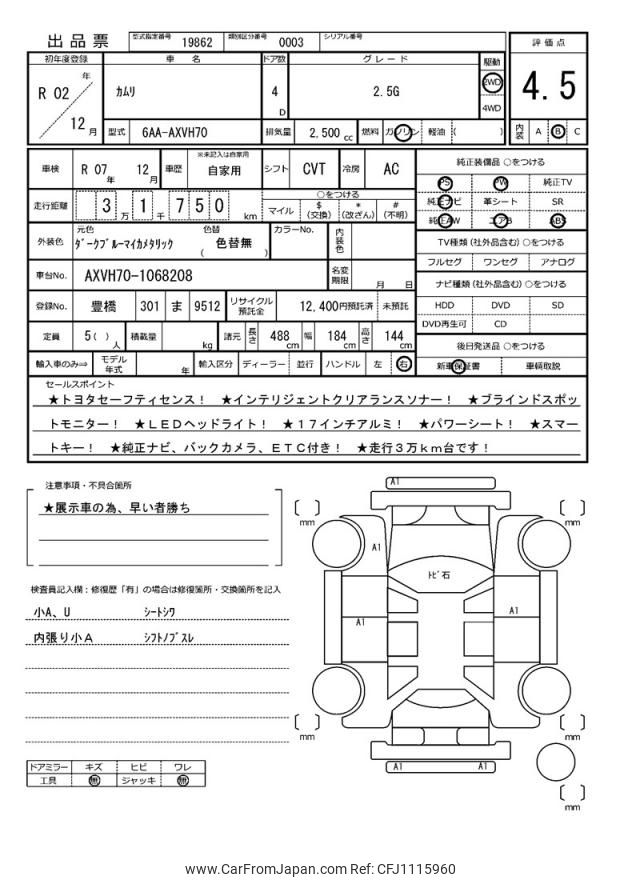 出品票
型式指定番号 19862 類別区分番号 0003 シリアル番号
初年度登録 車 名 ドア数 グレード 駆動 評価点
R 02 年 12 月
カムリ 4 D 2.5G 2WD 4WD
4.5
型式 6AA-AXVH70 排気量 2,500 cc 燃料 ガソリン 軽油 ( )
内装 A B C
車検 R 07 年 12 月 車歴 ※未記入は自家用 自家用 シフト CVT 冷房 AC
走行距離 3 万 1 千 7 5 0 km
○をつける
マイル $ (交換) * (改ざん) # (不明)
外装色 元色 ダークブルーマイカメタリック 色替 ( 色替無 ) カラーNo. 内装色
車台No. AXVH70-1068208 名変期限 月 日
登録No. 豊橋 301 ま 9512 リサイクル預託金 12,400円預託済 未預託
定員 5( ) 人 積載量 kg 諸元 長さ 488 cm 幅 184 cm 高さ 144 cm
輸入車のみ⇒ モデル年式 年 輸入区分 ディーラー 並行 ハンドル 左 右
純正装備品 ○をつける
PS PW 純正TV
純正ナビ 革シート SR
純正AW エアB ABS
TV種類 (社外品含む) ○をつける
フルセグ ワンセグ アナログ
ナビ種類 (社外品含む) ○をつける
HDD DVD SD
DVD再生可 CD
後日発送品 ○をつける
新車保証書 車輌取説
セールスポイント
★トヨタセーフティセンス! ★インテリジェントクリアランスソナー! ★ブラインドスポッ
トモニター! ★LEDヘッドライト! ★17インチアルミ! ★パワーシート! ★スマー
トキー! ★純正ナビ、バックカメラ、ETC付き! ★走行3万km台です!
注意事項・不具合箇所
★展示車の為、早い者勝ち
検査員記入欄:修復歴「有」の場合は修復箇所・交換箇所を記入
小A、U シートシワ
内張り小A シフトノブスレ
ドアミラー キズ ヒビ ワレ
工具 無 ジャッキ 無
A1
mm
mm
A1
トビ石
A1
A1
mm
mm
A1 A1
mm
www.CarFromJapan.com Ref: CFJ1115960